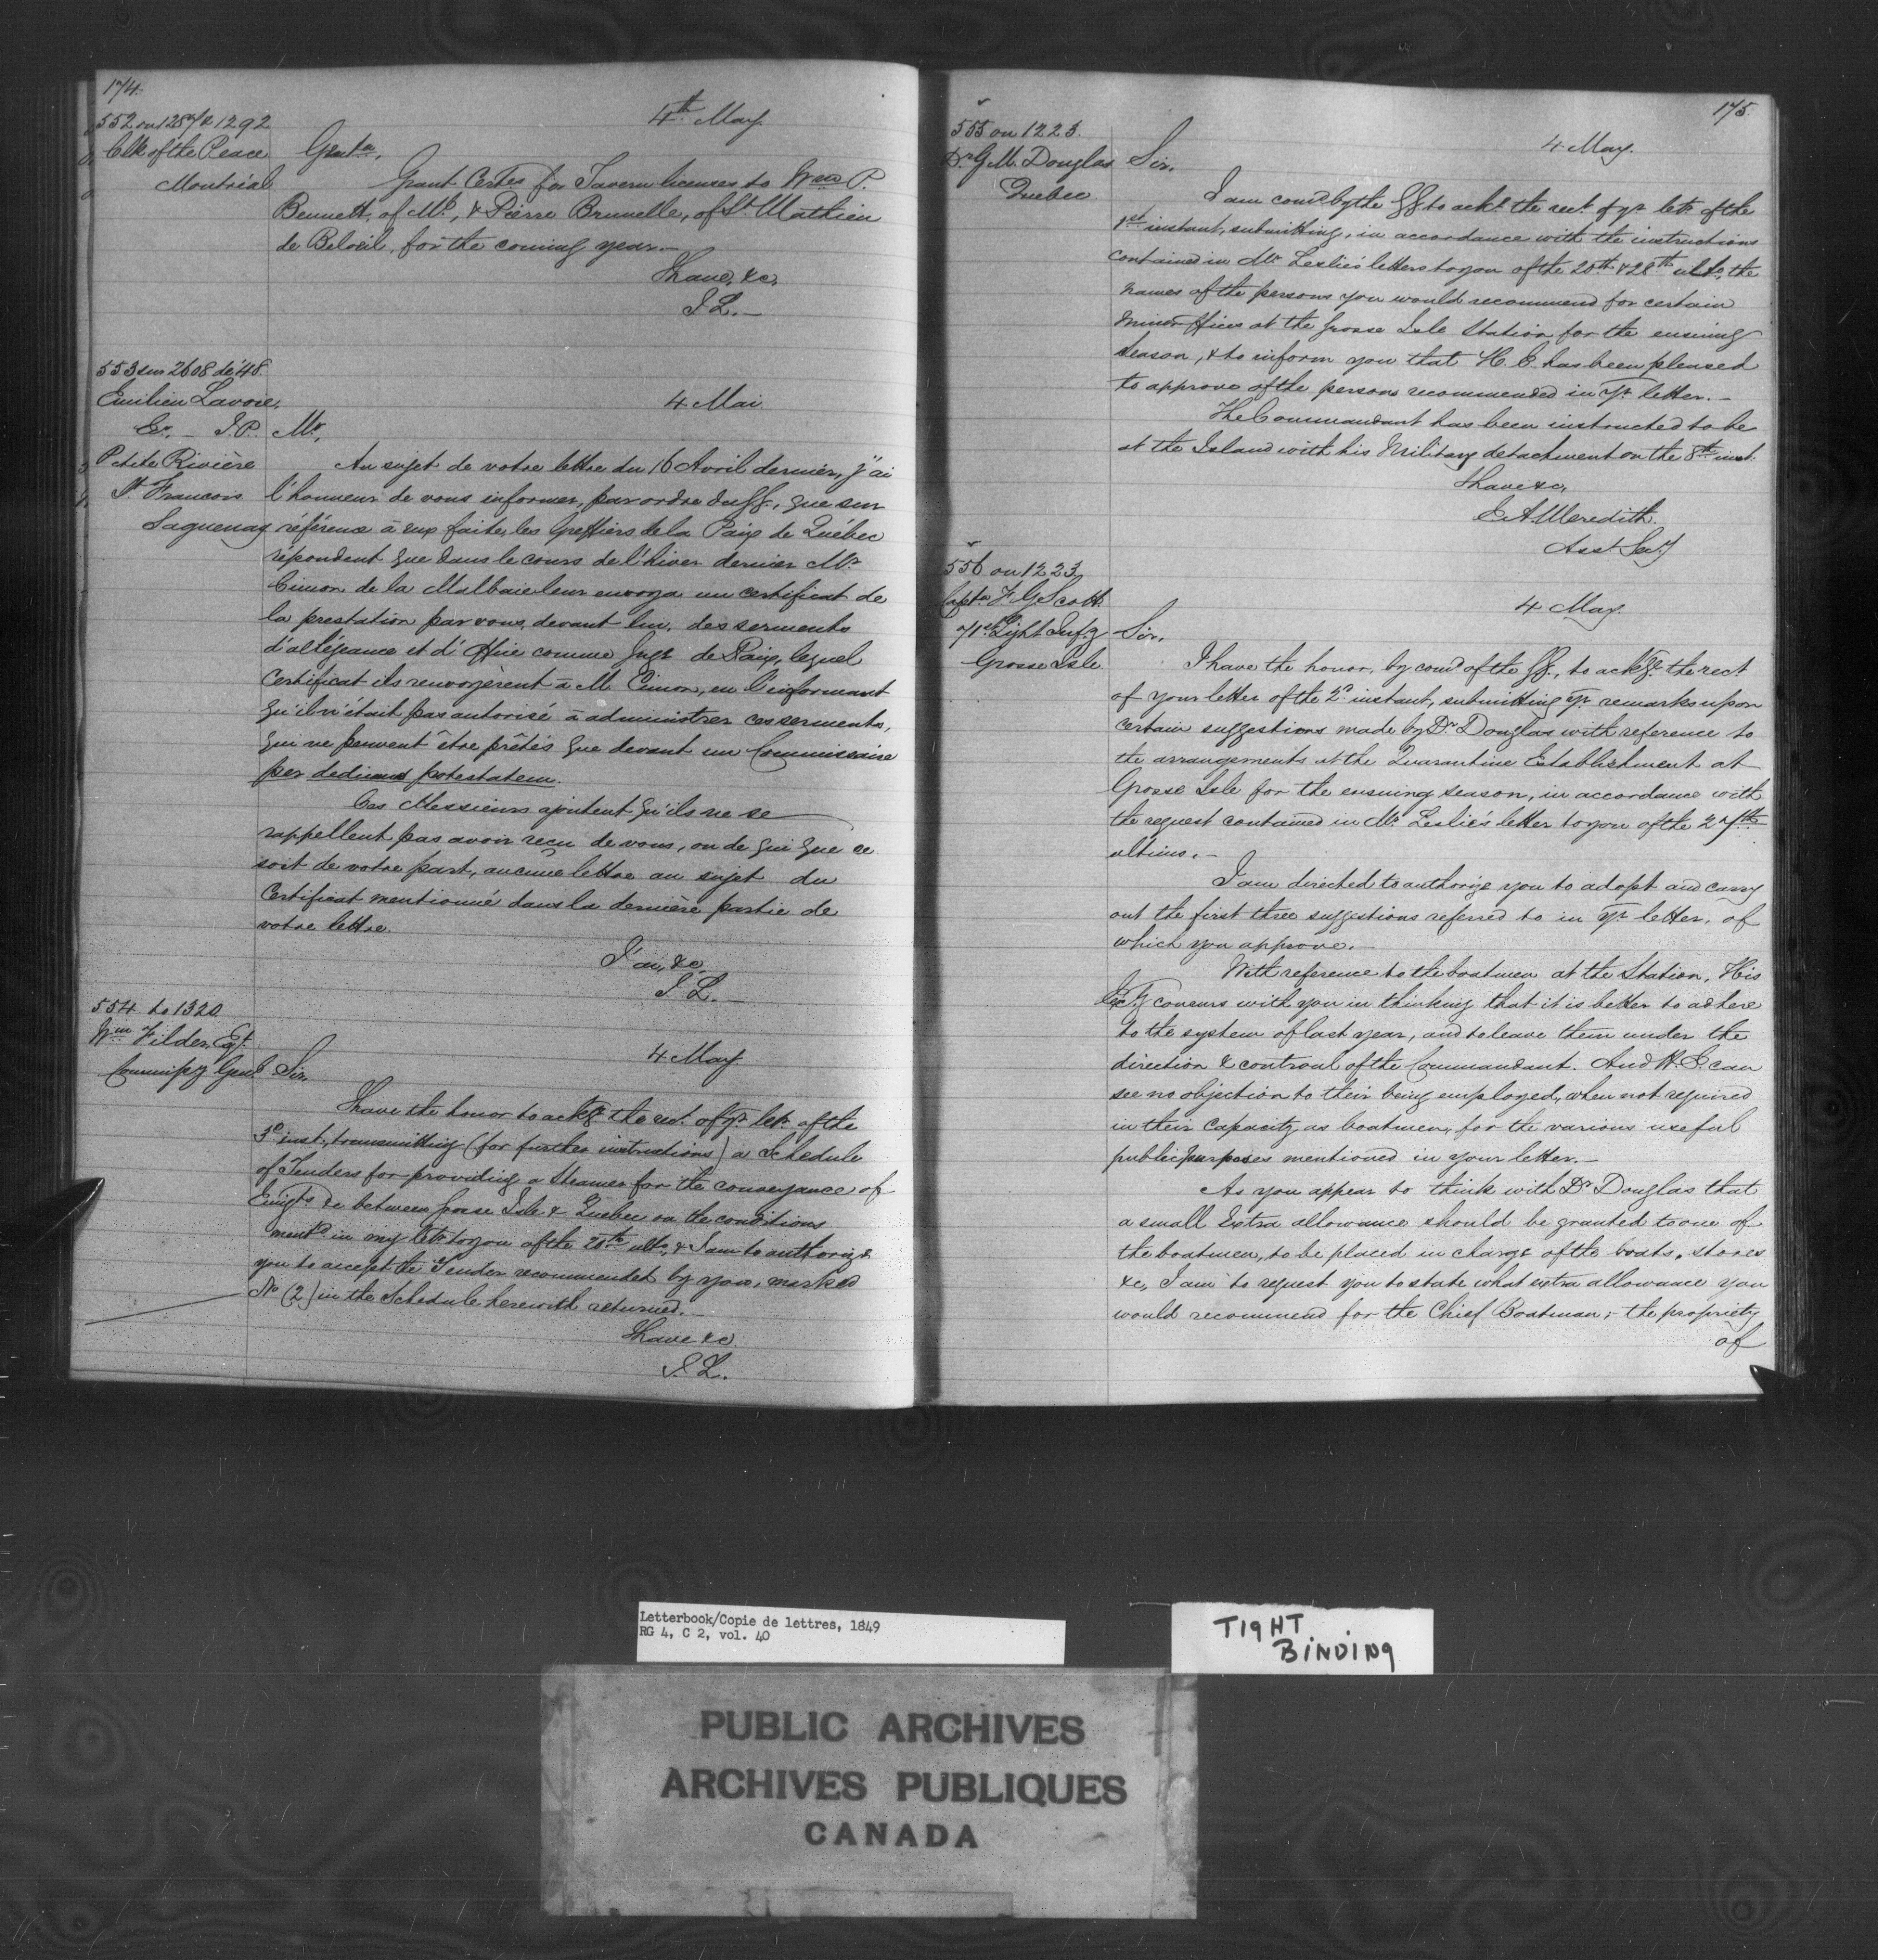 174.
552 on 1287 & 1292
Clk of the Peace
Montréal
4th May.
Gentn,
Grant Certes for Tavern licenses to Wm P.
Bennett, of Ml, & Pierre Brunelle, of St. Mathieu
de Belœil, for the coming year.—
I have, &c,
J. L.—
553 sur 2608 de '48.
Emilien Lavoie,
Er. — J.P.
Petite Rivière
St. Francois
Saguenay
4 Mai
Mr,
Au sujet de votre lettre du 16 Avril dernier, j'ai
l'honneur de vous informer, par ordre du GG., que sur
référence à eux faite, les Greffiers de la Paix de Québec
répondent que dans le cours de l'hiver dernier Mr.
Cimon de la Malbaie leur envoya un certificat de
la prestation par vous, devant lui, des serments
d'allégeance et d'Office comme Juge de Paix, lequel
Certificat ils renvoyèrent à M. Cimon, en l'informant
qu'il n'était pas autorisé à administrer ces serments,
qui ne peuvent être prêtés que devant un Commissaire
per dedimus potestatem.
Ces Messieurs ajoutent qu'ils ne se
rappellent pas avoir reçu de vous, ou de qui que ce
soit de votre part, aucune lettre au sujet du
Certificat mentionné dans la dernière partie de
votre lettre.
J'ai, &c,
J. L.—
554 to 1320
Wm Filder, Eqr.
Commissy Genl
4 May
Sir,
I have the honor to ackge the rect. of yr. letr. of the
3d inst, transmitting (for further instructions) a Schedule
of Tenders for providing a Steamer for the conveyance of
Emigts &c between Grosse Isle & Quebec on the conditions
mentd. in my letr to you of the 20th ulto, & I am to authorize
you to accept the Tender recommended by you, marked
No (2) in the Schedule herewith returned.—
I have &c.
J. L.
175
555 on 1223.
Dr. G. M. Douglas
Quebec
4 May.
Sir,
I am comd by the GG to ackl. the rect. of yr. letr. of the
1st instant, submitting, in accordance with the instructions
contained in Mr. Leslie's letters to you of the 20th & 28th ulto, the
names of the persons you would recommend for certain
minor offices at the Grosse Isle Station for the ensuing
season, & to inform you that H. E. has been pleased
to approve of the persons recommended in Yr. letter.—
The Commandant has been instructed to be
at the Island with his Military detachment on the 8th inst.
I have &c,
E. A. Meredith.
Asst. Secy
556 on 1223
Captn F. G. Scott
71st Light Infy
Grosse Isle
4 May.
Sir,
I have the honor, by comd of the GG., to ackge. the rect
of your letter of the 2d. instant, submitting yr. remarks upon
certain suggestions made by Dr. Douglas with reference to
the arrangements at the Quarantine Establishment at
Grosse Isle for the ensuing season, in accordance with
the request contained in Mr. Leslie's letter to you of the 27th
ultimo.—
I am directed to authorize you to adopt and carry
out the first three suggestions referred to in Yr. letter, of
which you approve.—
With reference to the boatmen at the Station, His
Excy concurs with you in thinking that it is better to adhere
to the system of last year, and to leave them under the
direction & controul of the Commandant. And H. E. can
see no objection to their being employed, when not required
in their Capacity as boatmen, for the various useful
public purposes mentioned in your letter.—
As you appear to think with Dr. Douglas that
a small Extra allowance should be granted to one of
the boatmen, to be placed in charge of the boats, stores
&c, I am to request you to state what extra allowance you
would recommend for the Chief Boatman;— the propriety
of
Letterbook/Copie de lettres, 1849
RG 4, C 2, vol. 40
TIGHT
BINDING
PUBLIC ARCHIVES
ARCHIVES PUBLIQUES
CANADA